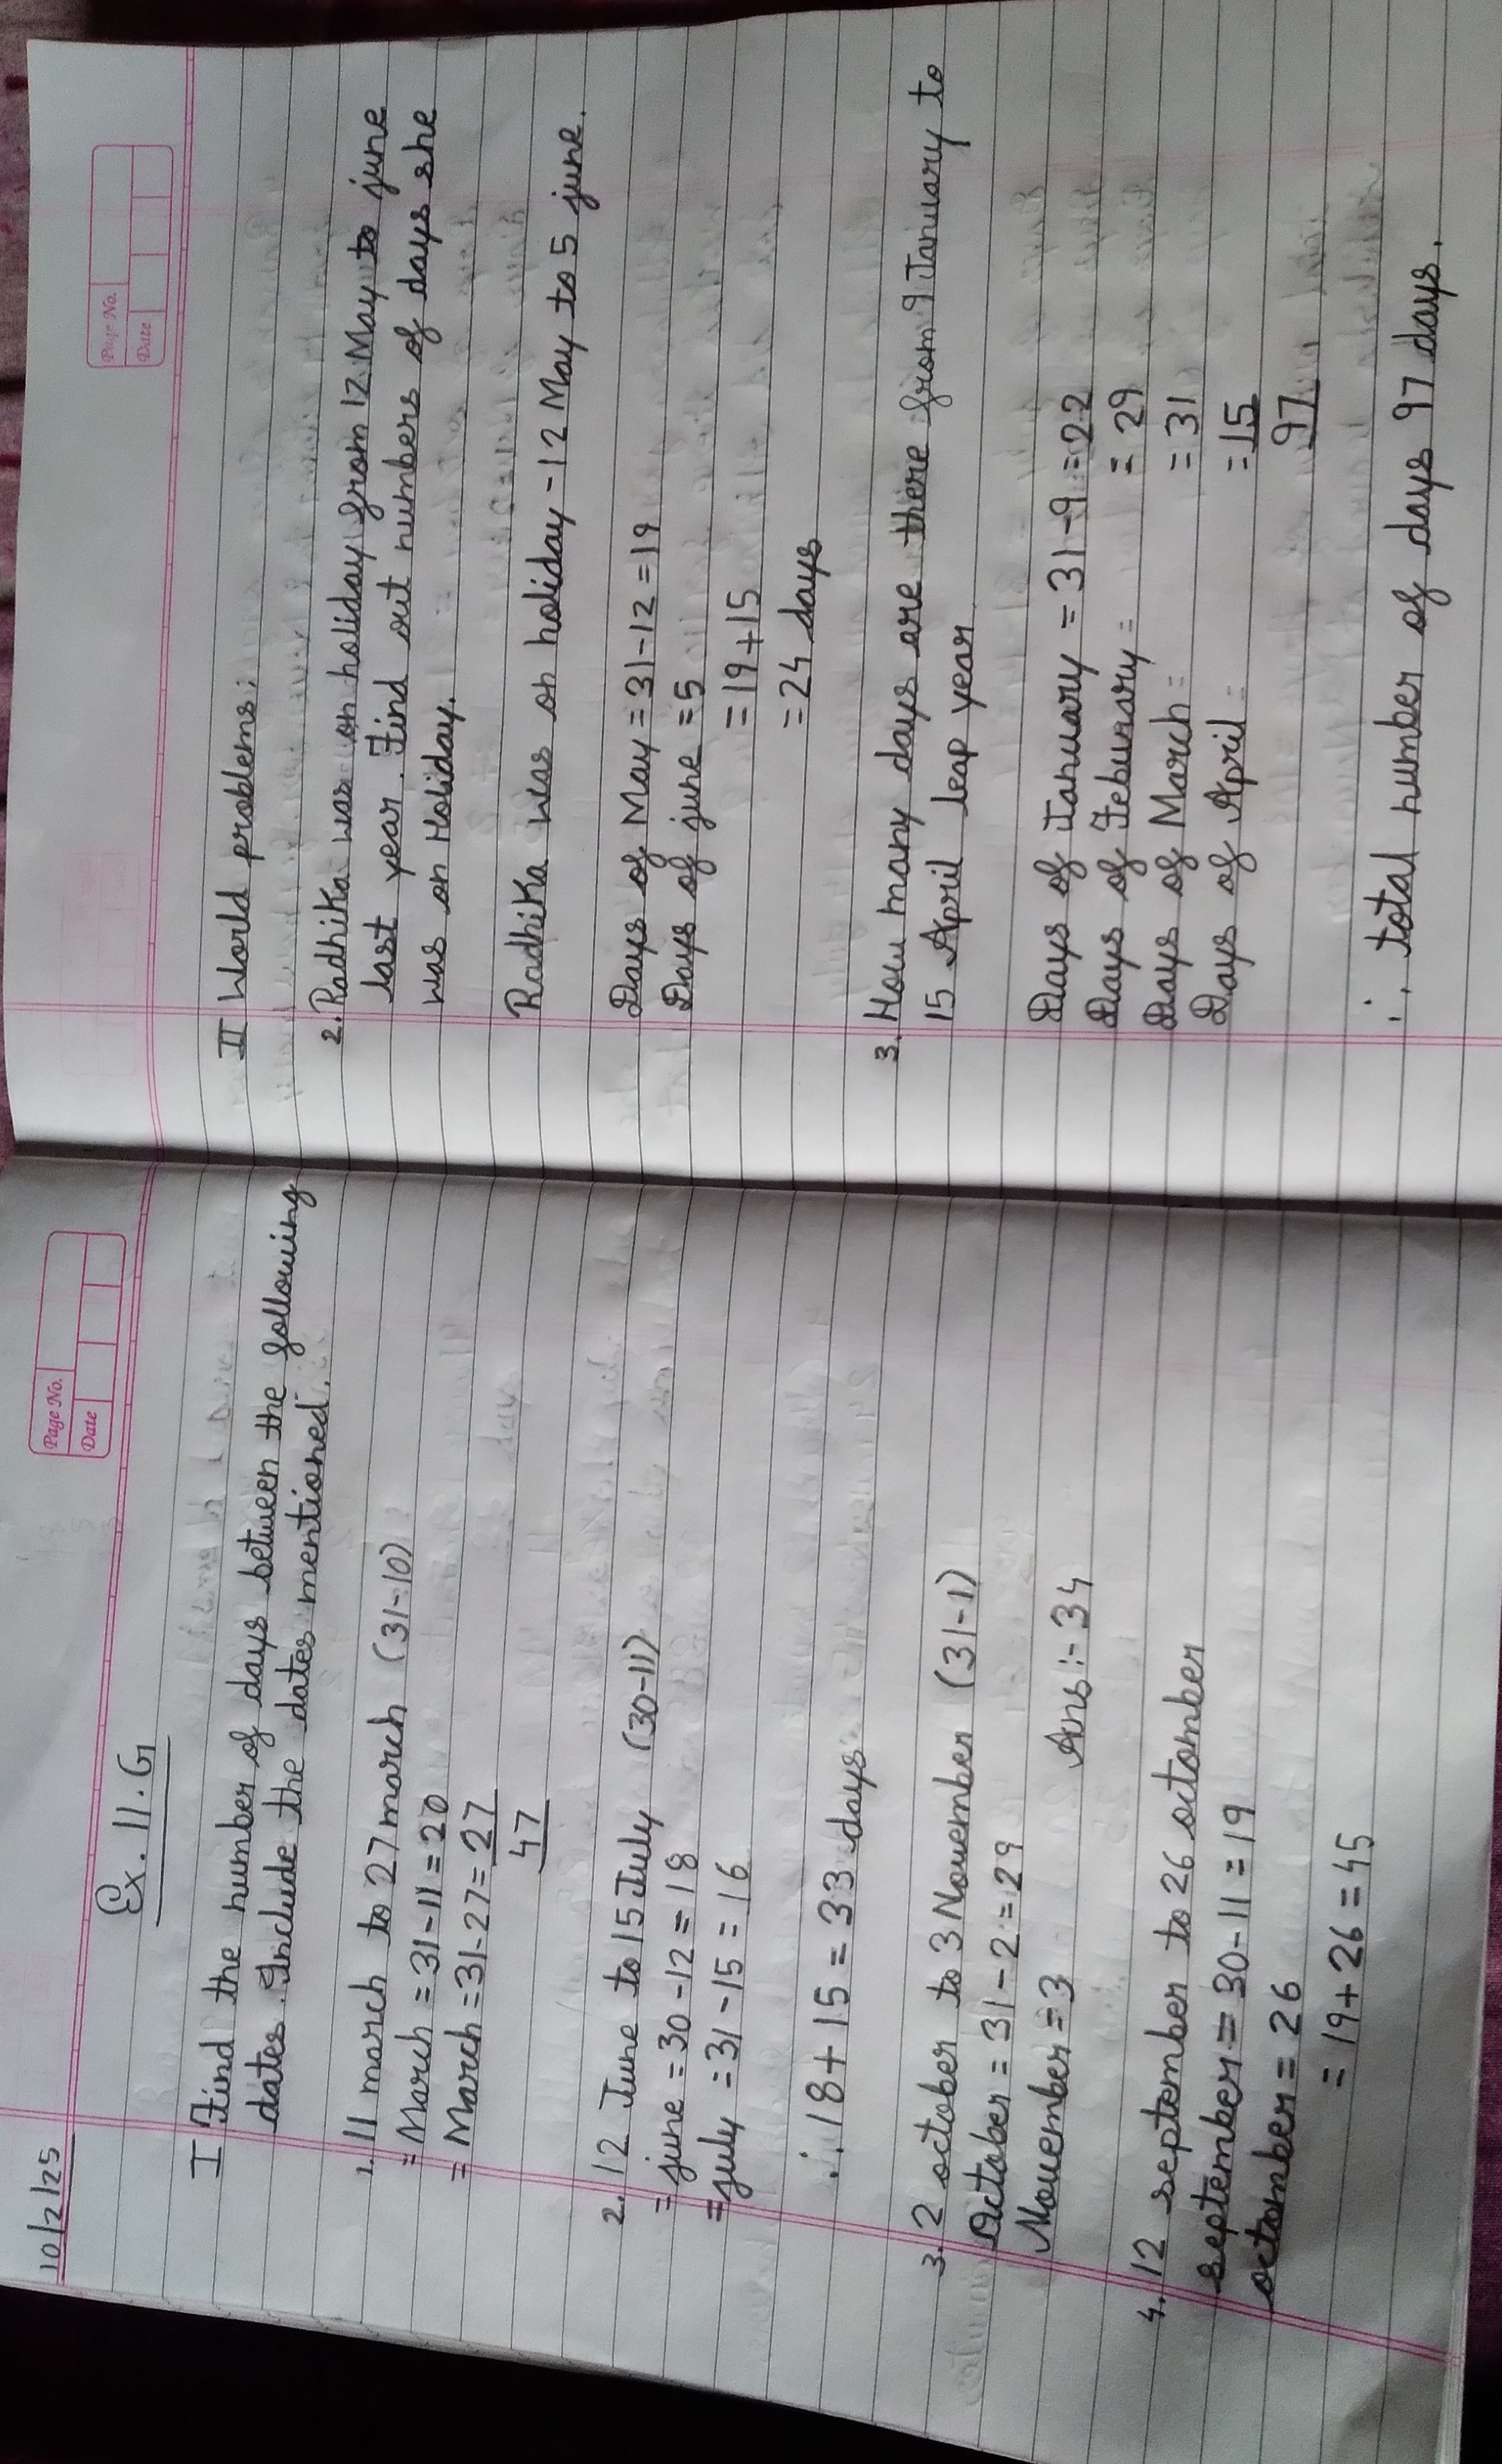 10/2/25
Page No.
Date
Ex. 11.G
I Find the number of days between the following
dates. Include the dates mentioned.
1. 11 march to 27 march (31-10)
= March = 31-11 = 20
= March = 31-27 = 27
47
2. 12 June to 15 July (30-11)
= june = 30-12 = 18
= july = 31-15 = 16
∴ 18+15 = 33 days
3. 2 october to 3 November (31-1)
October = 31-2 = 29
November = 3 Ans:- 34
4. 12 september to 26 octomber
september = 30-11 = 19
octomber = 26
= 19+26 = 45
Page No.
Date
II World problems:
2. Radhika was on holiday from 12 May to june
last year. Find out numbers of days she
was on Holiday.
Radhika was on holiday - 12 May to 5 june.
Days of May = 31-12 = 19
Days of june = 5
= 19+15
= 24 days
3. How many days are there from 9 January to
15 April leap year
Days of January = 31-9 = 22
Days of Feburary = = 29
Days of March = = 31
Days of April = = 15
97
∴ total number of days 97 days.